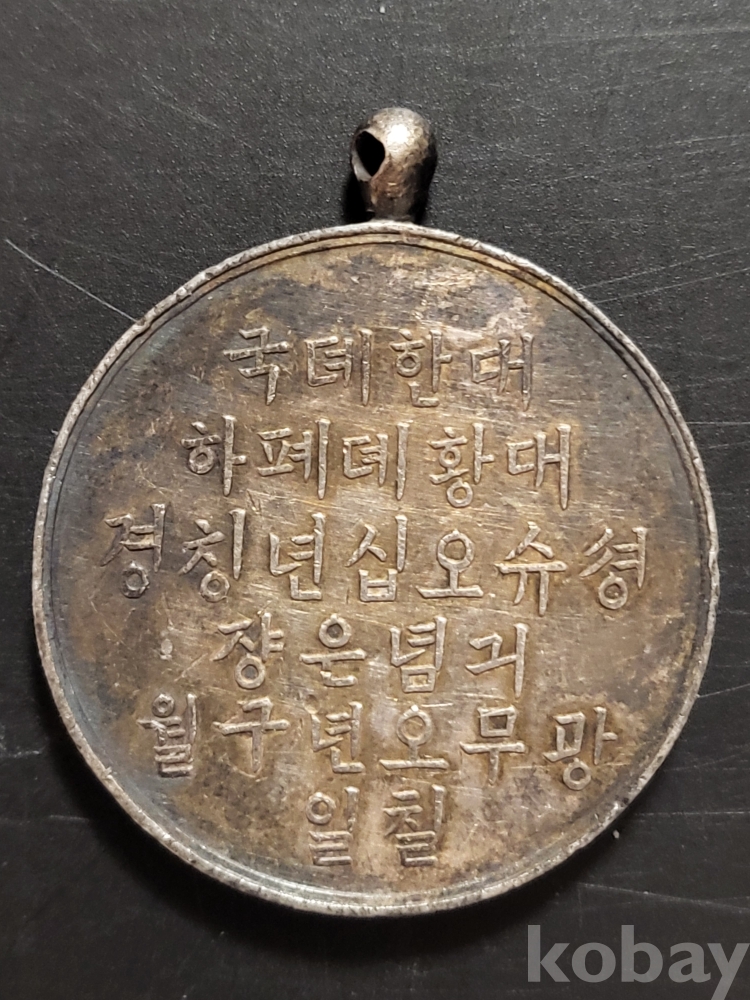 대한뎨국
대황뎨폐하
셩슈오십년칭경
긔념은쟝
광무오년구월
칠일
kobay